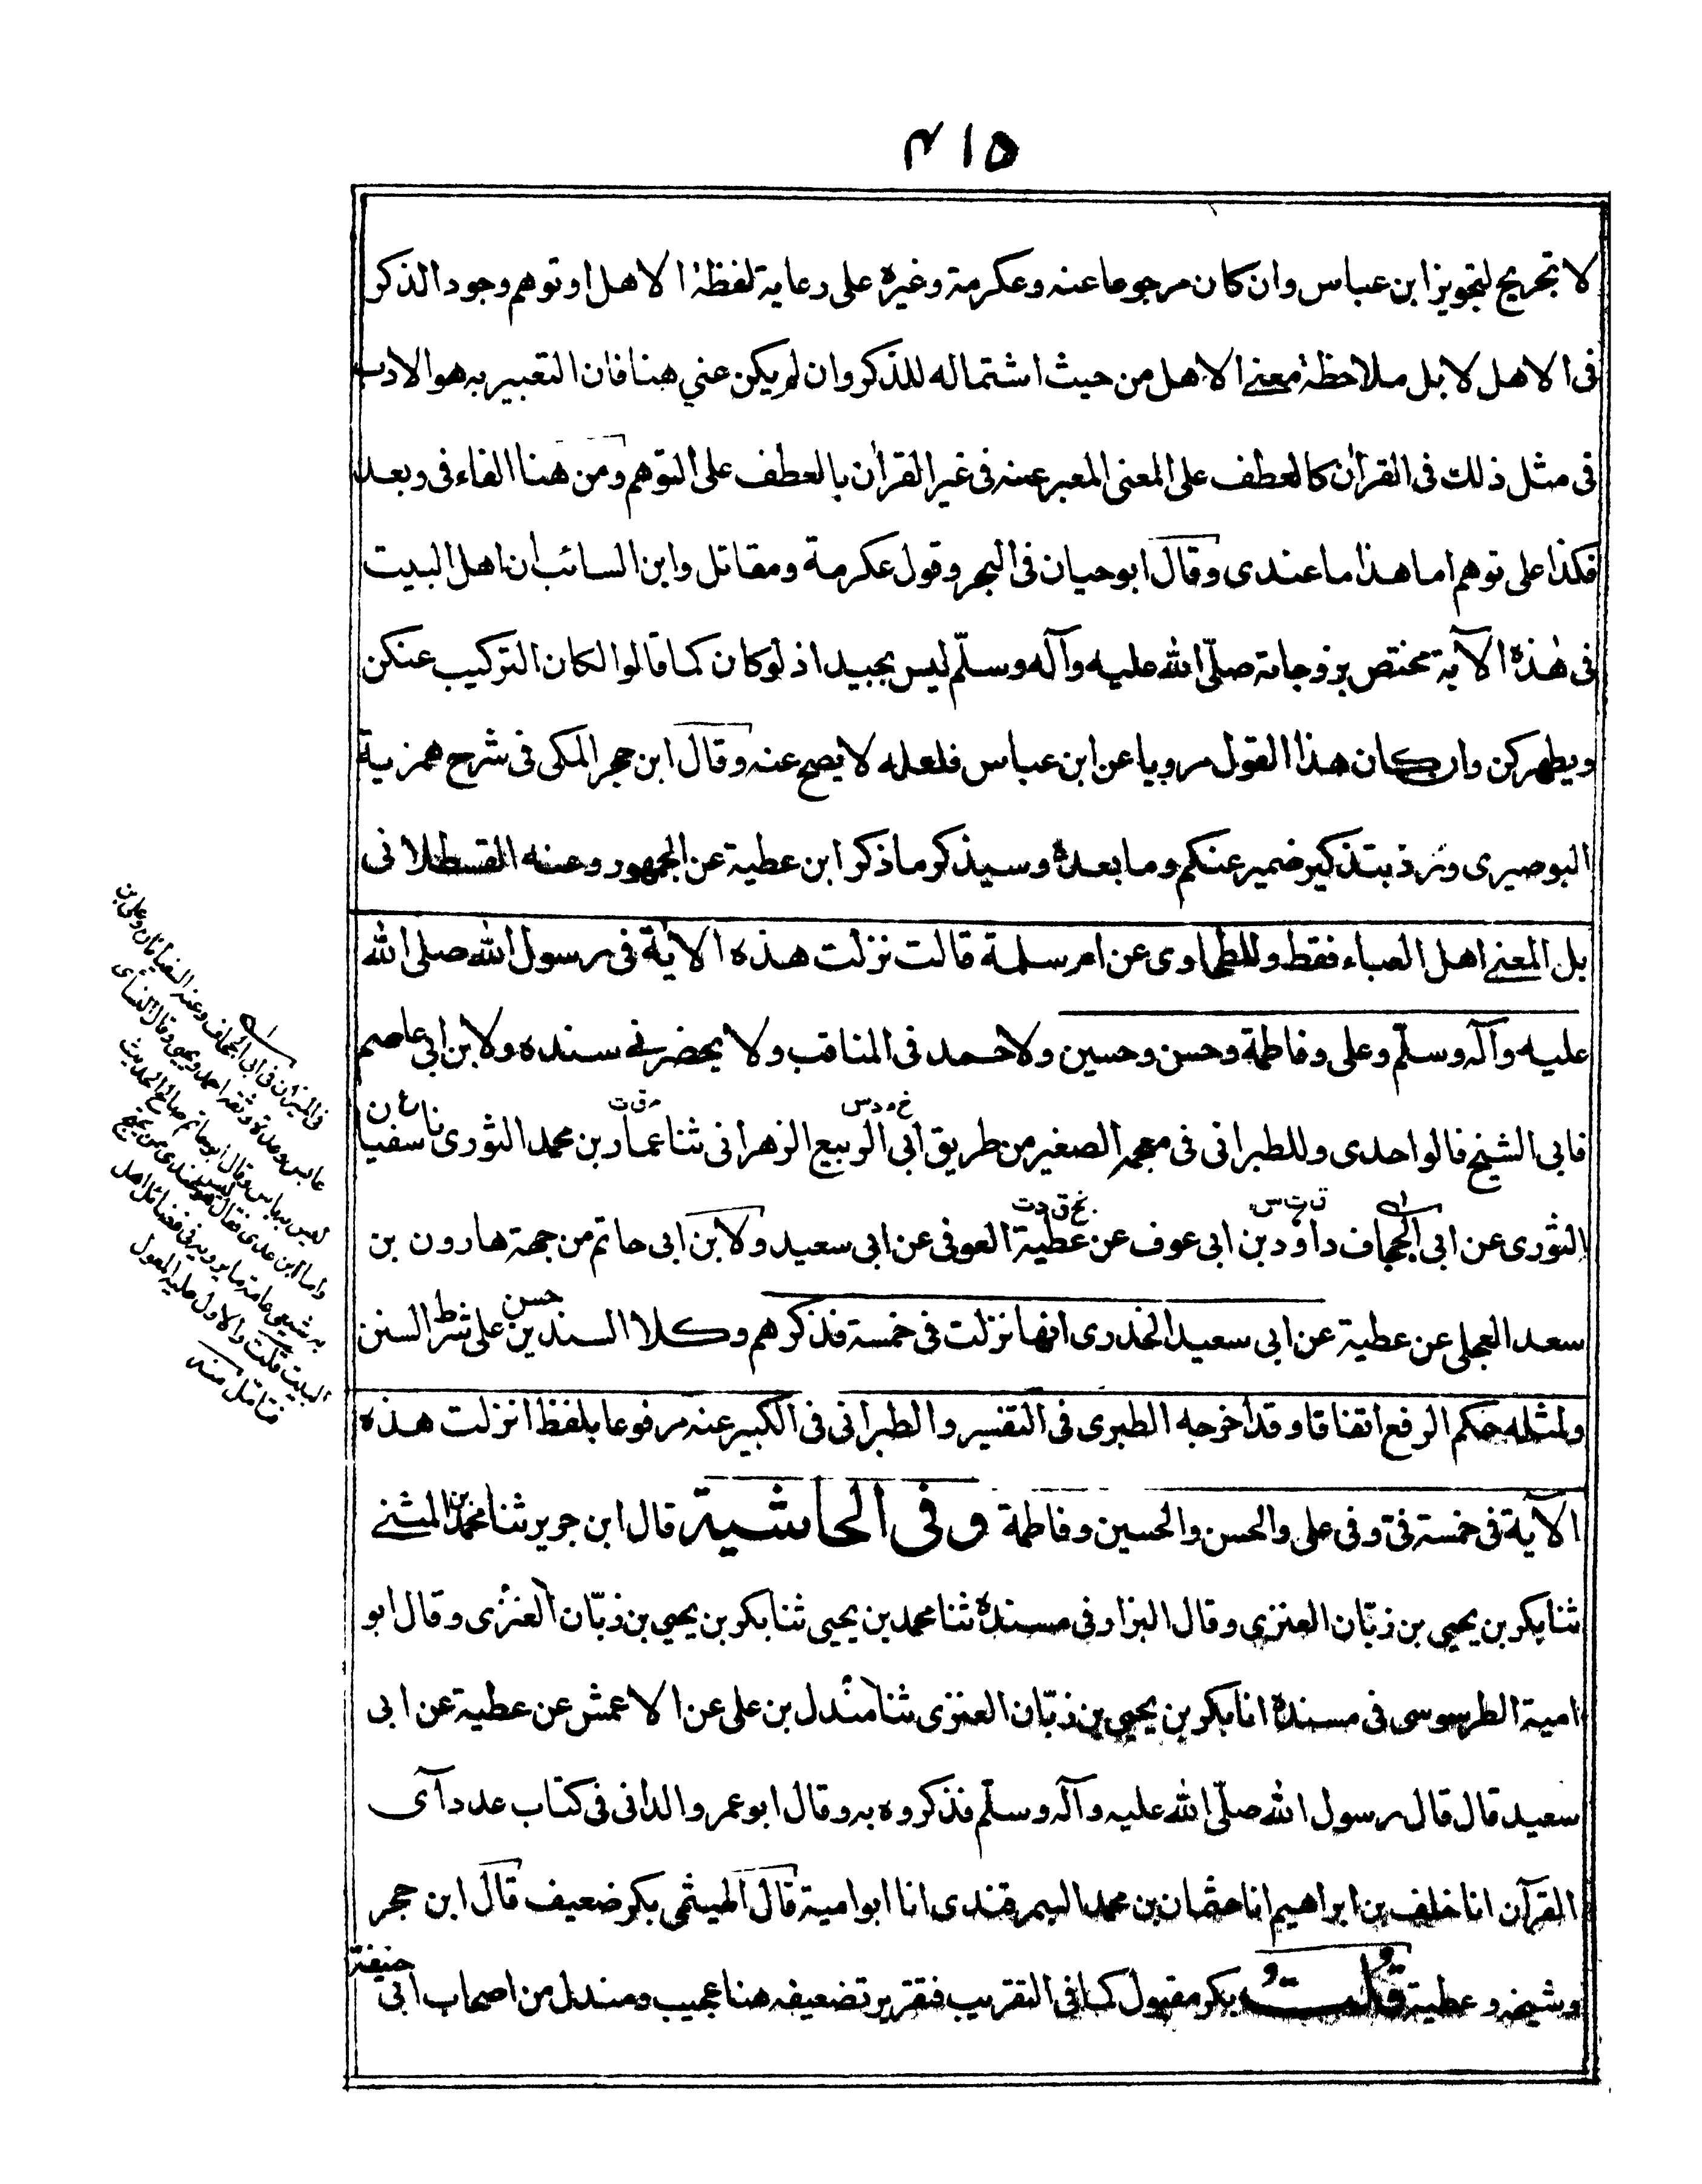 ۴۱۵
لا تجريح لتجويز ابن عباس وان كان مرجوعا عنه وعكرمة وغيره على رعاية لفظة الاهل او توهم وجود الذكر
فى الاهل لا بل ملاحظة معنے الاهل من حيث اشتماله للذكر وان لم يكن عني هنا فان التعبير به هو الادب
فى مثل ذلك فى القرآن كالعطف على المعنى المعبر عنه فى غير القرآن بالعطف على التوهم ومن هنا الفاء فى وبعد
فكذا على توهم اما هذا ما عندى وقال ابو حيان فى البحر وقول عكرمة ومقاتل وابن السائب ان اهل البيت
فى هٰذه الآية مختص بزوجاته صلّى الله عليه وآله وسلّم ليس بجيد اذ لو كان كما قالوا لكان التركيب عنكن
ويطهركن وان كان هذا القول مرويا عن ابن عباس فلعله لا يصح عنه وقال ابن حجر المكى فى شرح همزية
البوصيرى ورد بتذكير ضمير عنكم وما بعده وسيذكر ما ذكر ابن عطية عن الجمهور وعنه القسطلانى
بل المعنے اهل العباء فقط وللطحاوى عن ام سلمة قالت نزلت هذه الآية فى رسول الله صلى الله
عليه وآله وسلّم وعلى وفاطمة وحسن وحسين ولاحمد فى المناقب ولا يحضرنے سنده ولابن ابى عاصم
فابى الشيخ فالواحدى وللطبرانى فى معجمه الصغير من طريق ابى الربيع الزهرانى ثنا عمار بن محمد الثورى نا سفيان
الثورى عن ابى الجحاف داود بن ابى عوف عن عطية العوفى عن ابى سعيد ولابن ابى حاتم من جهة هارون بن
سعد العجلى عن عطية عن ابى سعيد الخدرى انها نزلت فى خمسة فذكرهم وكلا السندين حسن على شرط السنن
ولمثله حكم الرفع اتفاقا وقد اخرجه الطبرى فى التفسير والطبرانى فى الكبير عنه مرفوعا بلفظ انزلت هذه
الآية فى خمسة فىّ وفى على والحسن والحسين وفاطمة وفى الحاشية قال ابن جرير ثنا محمد بن المثنے
ثنا بكر بن يحيى بن زبّان العنزى وقال البزار فى مسنده ثنا محمد بن يحيى ثنا بكر بن يحيى بن زبّان العنزى وقال ابو
امية الطرسوسى فى مسنده انا بكر بن يحيى بن زبّان العنزى ثنا مندل بن على عن الاعمش عن عطية عن ابى
سعيد قال قال رسول الله صلّى الله عليه وآله وسلّم فذكروه به وقال ابو عمرو الدانى فى كتاب عدد آى
القرآن انا خلف بن ابراهيم انا عثمان بن محمد السمرقندى انا ابو امية قال الهيثمى بكر ضعيف قال ابن حجر
وشيخه وعطية قلت بكر مقبول كما فى التقريب فتقرير تضعيفه هنا عجيب ومندل من اصحاب ابى حنيفة
فى الميزان فى ابى الجحاف وعنه السفيانان وعلى بن
عابس وعدة وثقه احمد ويحيى وقال النسائى
ليس به باس وقال ابو حاتم صالح الحديث
واما ابن عدى فقال ليس هو عندى ممن يحتج
به شيعى عامة ما يرويه فى فضائل اهل
البيت قلت والاول عليه المعول
فتامل منه